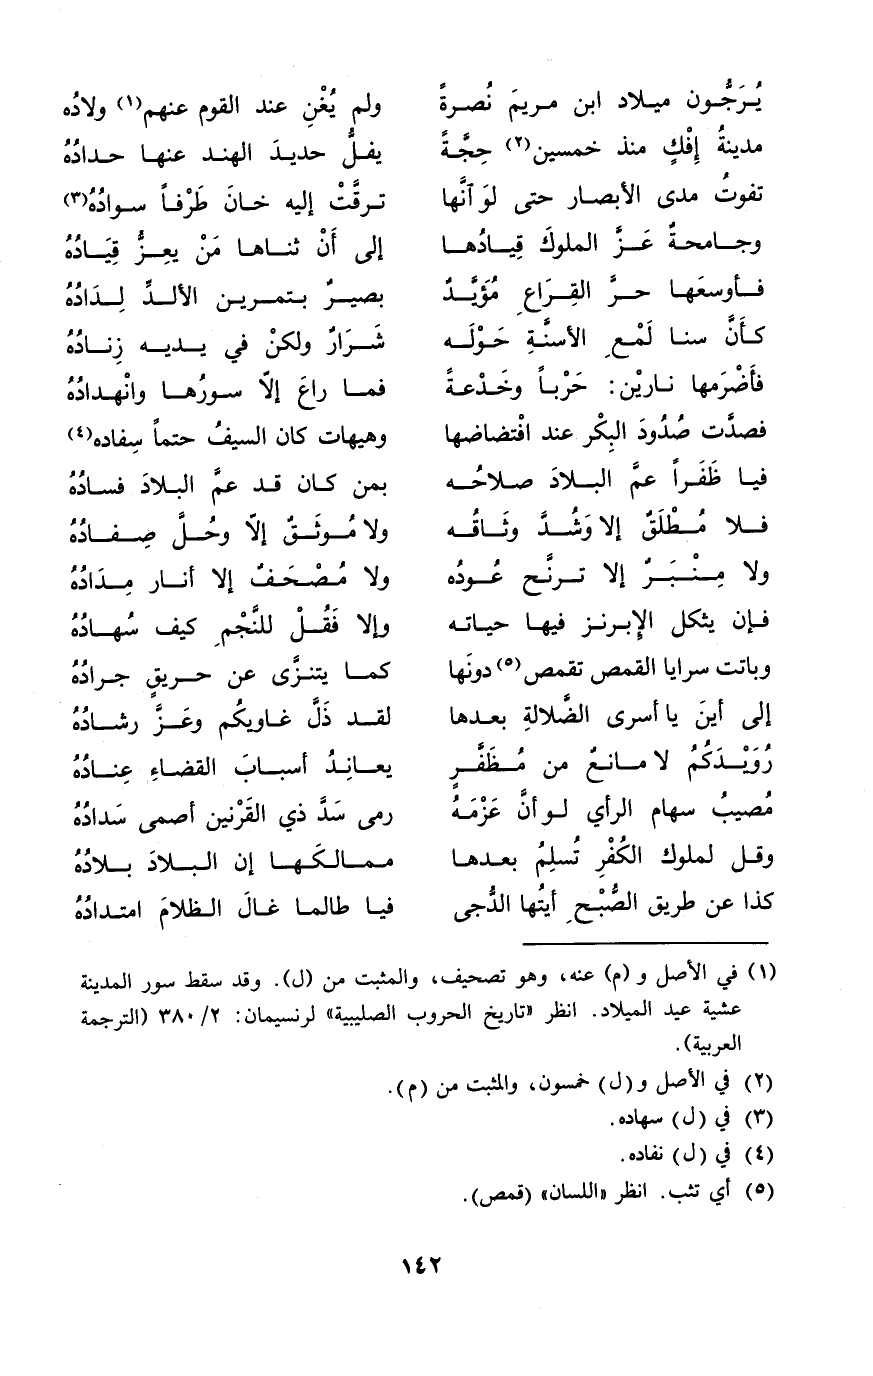 يُرَجُّون ميلاد ابن مريمَ نُصرةً ولم يُغْنِ عند القوم عنهم(١) ولادُه
مدينةُ إفْكٍ منذ خمسين(٢) حِجَّةً يفلُّ حديدَ الهند عنها حدادُهُ
تفوتُ مدى الأبصار حتى لوَ آنَّها ترقَّتْ إليه خانَ طَرْفاً سوادُهُ(٣)
وجامحةٌ عَزَّ الملوكَ قِيادُها إلى أنْ ثناها مَنْ يعِزُّ قِيَادُهُ
فأوسعَها حرَّ القِرَاعِ مُؤَيَّدٌ بصيرٌ بتمرين الألدِّ لِدَادُهُ
كأنَّ سنا لَمْعِ الأسنَّةِ حَوْلَه شَرَارٌ ولكنْ في يديه زِنادُهُ
فأَضْرَمها نارَيْن: حَرْباً وخَدْعةً فما راعَ إلّا سورُها وانْهدادُهُ
فصدَّت صُدُودَ البِكْر عند افْتضاضها وهيهات كان السيفُ حتماً سِفاده(٤)
فيا ظَفَراً عمَّ البلادَ صلاحُه بمن كان قد عمَّ البلادَ فسادُهُ
فلا مُطْلَقٌ إلا وَشُدَّ وثَاقُه ولا مُوثَقٌ إلّا وحُلَّ صِفادُهُ
ولا مِنْبَرٌ إلا ترنَّح عُودُه ولا مُصْحَفٌ إلا أنار مِدَادُهُ
فإن يثكل الإبرنز فيها حياته وإلا فَقُلْ للنَّجْمِ كيف سُهادُهُ
وباتت سرايا القمص تقمص(٥) دونَها كما يتنزَّى عن حريقٍ جرادُهُ
إلى أينَ يا أسرى الضَّلالةِ بعدها لقد ذَلَّ غاويكُم وعَزَّ رشادُهُ
رُوَيْدَكُمُ لا مانعٌ من مُظَفَّرٍ يعانِدُ أسبابَ القضاءِ عِنادُهُ
مُصيبُ سهام الرأي لو أنَّ عَزْمَهُ رمى سَدَّ ذي القَرْنين أصمى سَدادُهُ
وقل لملوك الكُفْرِ تُسلِمُ بعدها ممالكَها إن البلادَ بلادُهُ
كذا عن طريق الصُّبْحِ أيتُها الدُّجى فيا طالما غالَ الظلامَ امتدادُهُ
(١) في الأصل و (م) عنه، وهو تصحيف، والمثبت من (ل). وقد سقط سور المدينة
عشية عيد الميلاد. انظر «تاريخ الحروب الصليبية» لرنسيمان: ٢/ ٣٨٠ (الترجمة
العربية).
(٢) في الأصل و(ل) خمسون، والمثبت من (م).
(٣) في (ل) سهاده.
(٤) في (ل) نفاده.
(٥) أي تثب. انظر «اللسان» (قمص).
١٤٢